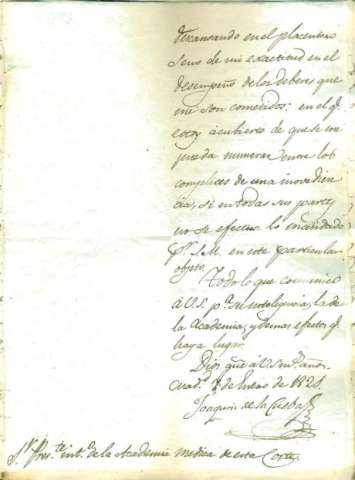 descansando en el placentero
seno de mi exactitud en el
desempeño de los deberes que
me son cometidos: en el q.
estoy á cubierto de que se me
pueda numerar entre los
complices de una inovedien
cia, si en todas sus partes
no se efectua lo mandado
pr. S.M. en este particular
objeto.
Todo lo que comunico
á V.S. pa. su inteligencia, la de
la Academia, y demas efectos q.
haya lugar.
Dios gue. á V.S. ms. años.
de Enero de 1821.
Joaquin de la Cuesta
Sr. Pres.te int.o de la Academia medica de esta Corte.